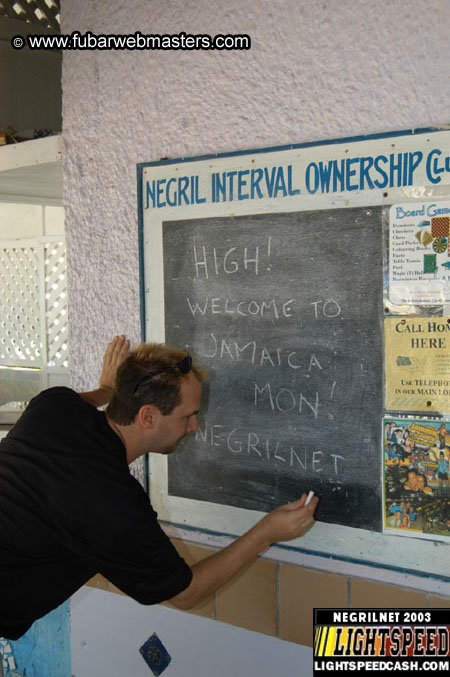 © www.fubarwebmasters.com
NEGRIL INTERVAL OWNERSHIP
HIGH!
WELCOME TO
JAMAICA
MON!
NEGRILNET
Board Games
Checkers
Chess
CALL HOME
HERE
USE TELEPHONE
IN OUR MAIN
NEGRILNET 2003
LIGHTSPEED
LIGHTSPEEDCASH.COM